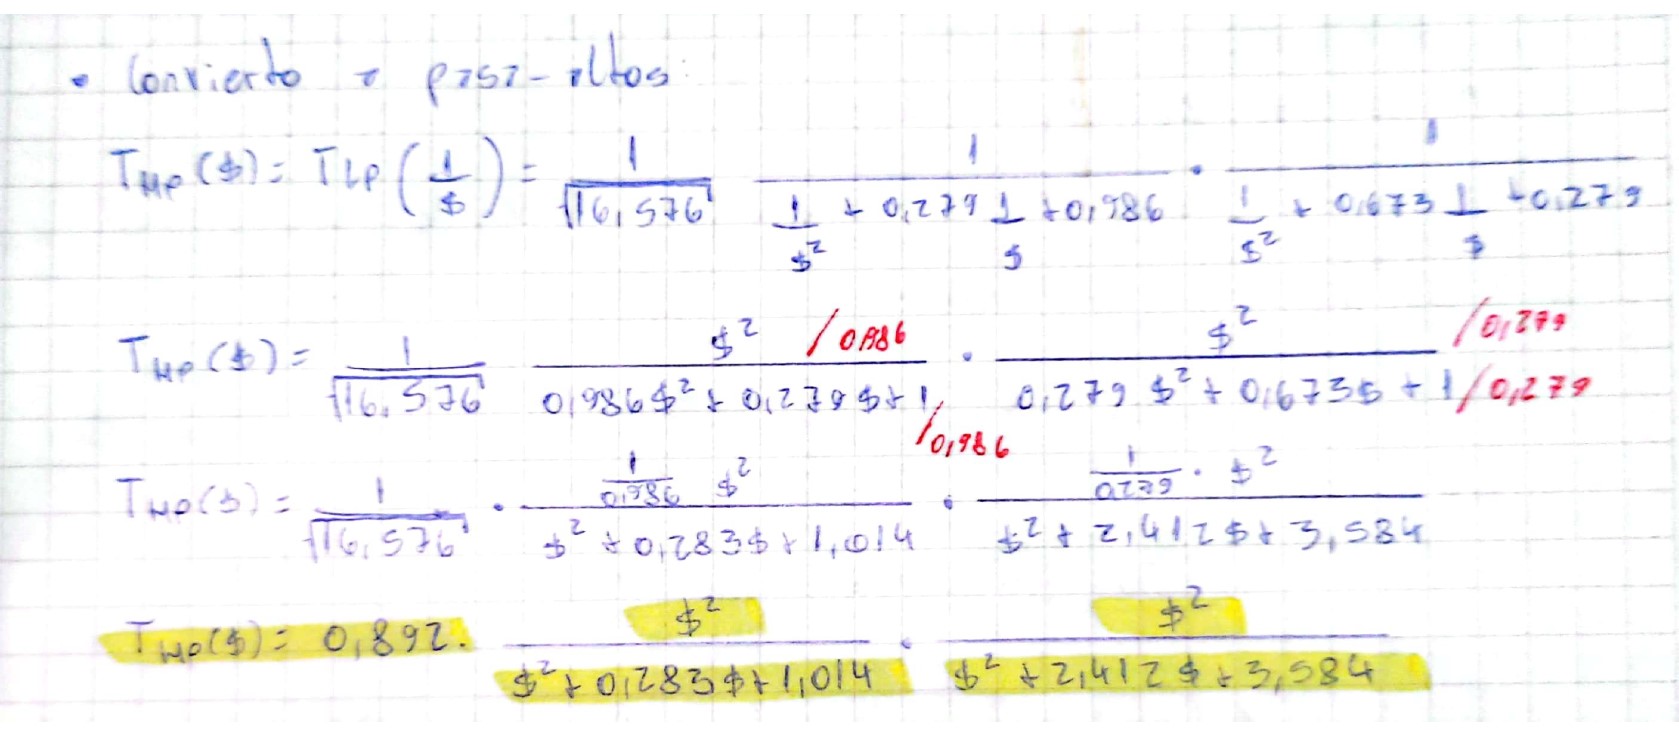 • Convierto a pasa-altos:
T_HP($) = T_LP(1/$) = 1/√16,576 1/(1/$² + 0,279 1/$ + 0,986) · 1/(1/$² + 0,673 1/$ + 0,279)
T_HP($) = 1/√16,576 $² /0,986 / (0,986$² + 0,279$ + 1) /0,986 · $² /0,279 / (0,279$² + 0,673$ + 1) /0,279
T_HP($) = 1/√16,576 · (1/0,986 $²)/($² + 0,283$ + 1,014) · (1/0,279 · $²)/($² + 2,412$ + 3,584)
T_HP($) = 0,892 · $²/($² + 0,283$ + 1,014) · $²/($² + 2,412$ + 3,584)